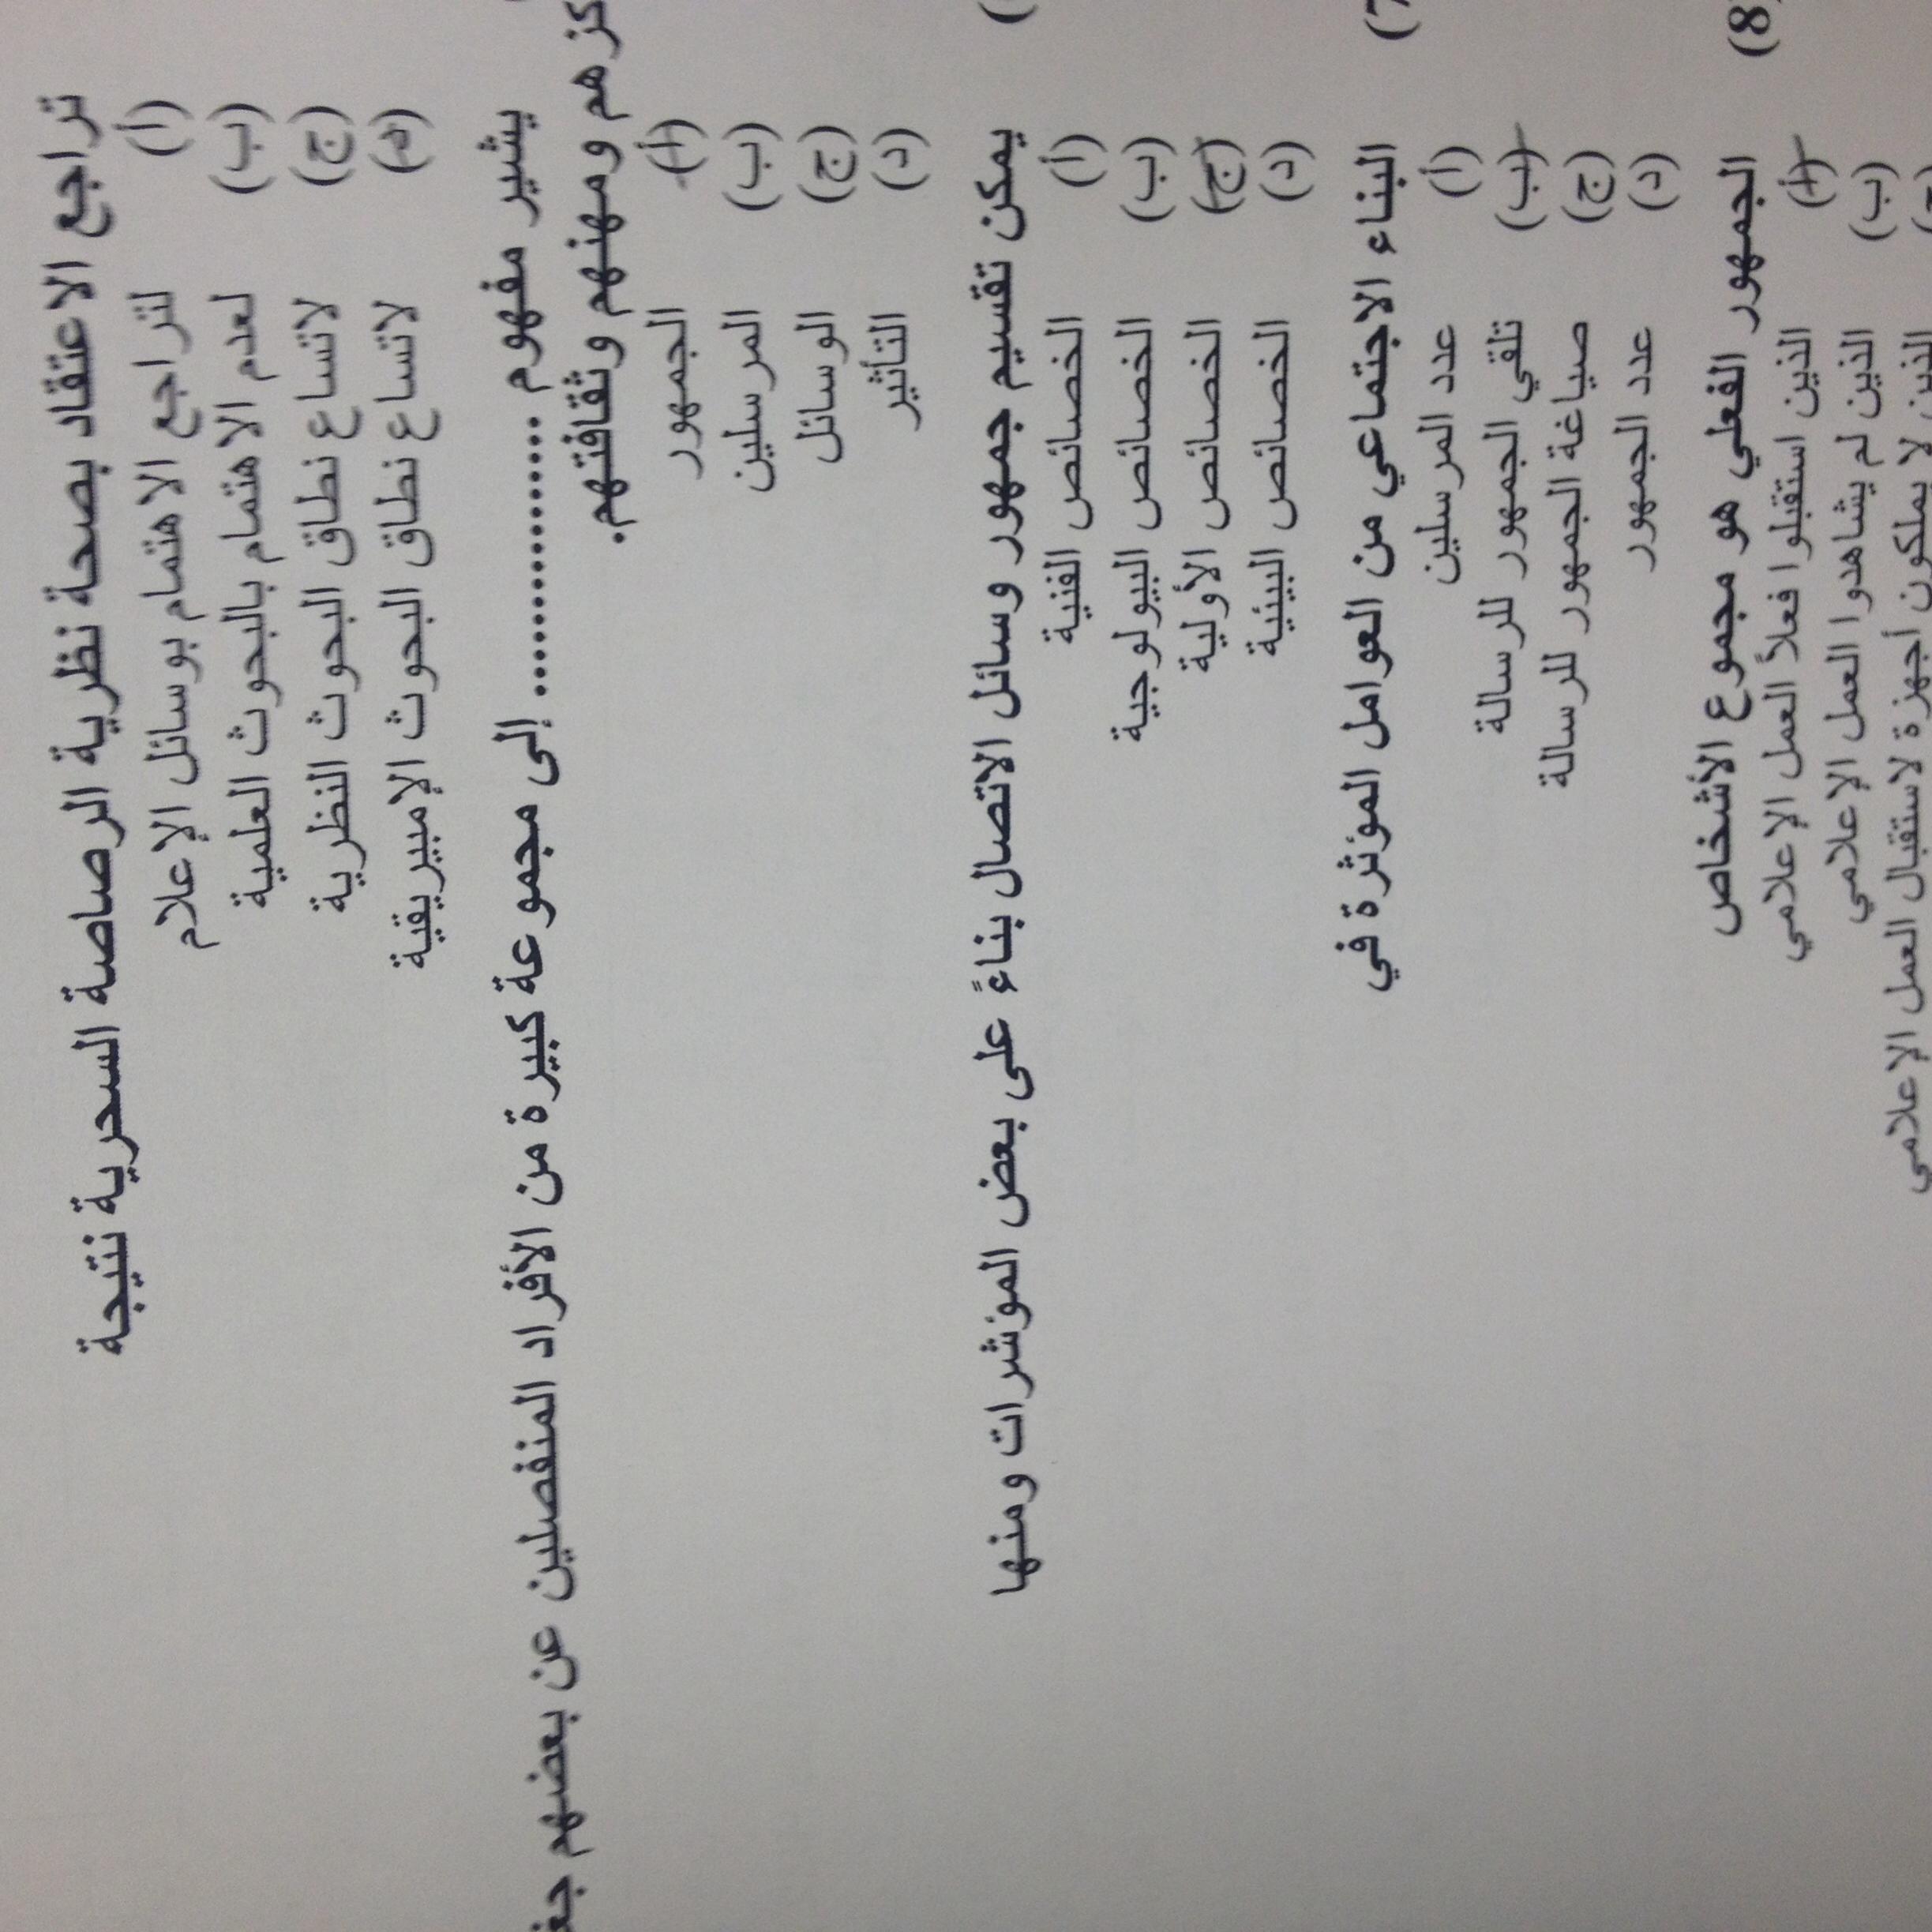 تراجع الاعتقاد بصحة نظرية الرصاصة السحرية نتيجة
(أ) لتراجع الاهتمام بوسائل الإعلام
(ب) لعدم الاهتمام بالبحوث العلمية
(ج) لاتساع نطاق البحوث النظرية
(د) لاتساع نطاق البحوث الإمبيريقية
يشير مفهوم ................ إلى مجموعة كبيرة من الأفراد المنفصلين عن بعضهم
ومهنهم وثقافتهم.
(أ) الجمهور
(ب) المرسلين
(ج) الوسائل
(د) التأثير
يمكن تقسيم جمهور وسائل الاتصال بناءً على بعض المؤشرات ومنها
(أ) الخصائص الفنية
(ب) الخصائص البيولوجية
(ج) الخصائص الأولية
(د) الخصائص البيئية
(7 البناء الاجتماعي من العوامل المؤثرة في
(أ) عدد المرسلين
(ب) تلقي الجمهور للرسالة
(ج) صياغة الجمهور للرسالة
(د) عدد الجمهور
(8 الجمهور الفعلي هو مجموع الأشخاص
(أ) الذين استقبلوا فعلاً العمل الإعلامي
(ب) الذين لم يشاهدوا العمل الإعلامي
(ج) الذين لا يملكون أجهزة لاستقبال العمل الإعلامي